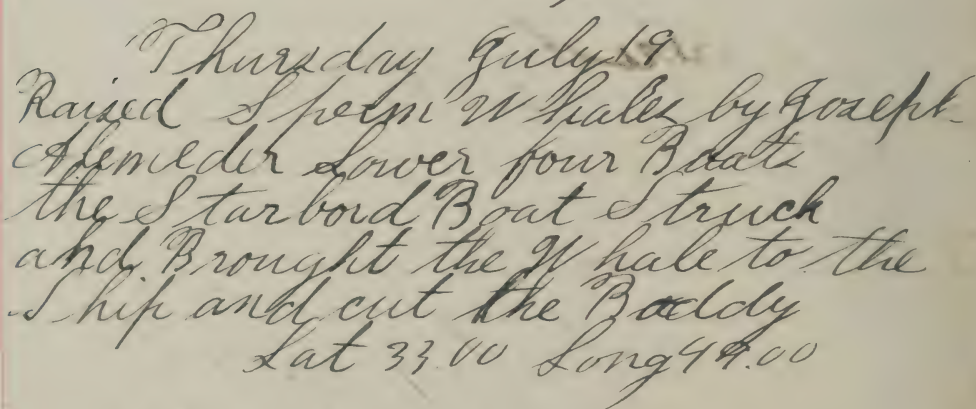 Thursday July 19
Raised Sperm Whales by Joseph
Alemeder Lower four Boats
the Starbord Boat Struck
and Brought the Whale to the
Ship and cut the Boddy
Lat 33.00 Long 44.00